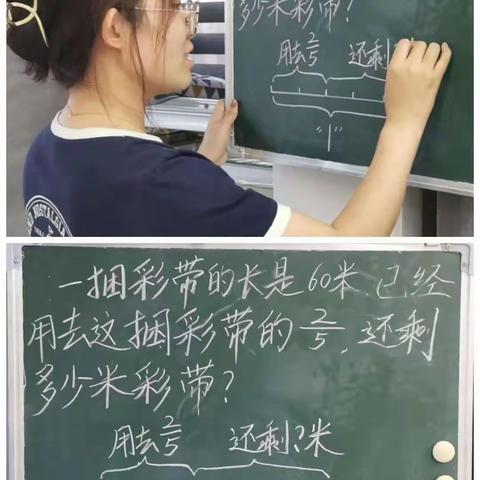 多少米彩带?
用去2/5 还剩
"1"
NOSTALGIA
一捆彩带的长是60米 已经
用去这捆彩带的2/5,还剩
多少米彩带?
用去2/5 还剩?米